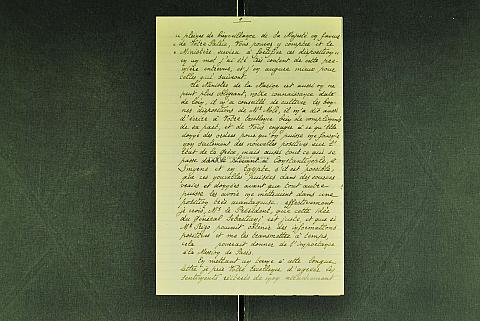 " pleines de bienveillance de Sa Majesté en faveur
" de Votre Patrie, Vous pouvez y compter et le
" Ministère suivra à fortifier ces dispositions."
en un mot j'ai été très content de cette pre-
mière entrevue, et j'en augure mieux pour
celles qui suivront.
Le Ministre de la Marine est aussi on ne
peut plus obligeant, notre connaissance date
de loin, il m'a conseillé de cultiver les bon-
nes dispositions de Mr. Molé, il m'a dit aussi
d'écrire à Votre Excellence bien de compliments
de sa part, et de Vous engager à ce qu'elle
donne des ordres pour qu'on puisse me faire
non seulement des nouvelles positives sur l'
état de la Grèce, mais aussi tout ce qui se
passe à Constantinople, à
Smyrne et en Egypte, s'il est possible,
que ces nouvelles puisées dans des sources
vraies et données avant que tout autre
puisse les avoir me mettraient dans une
position très avantageuse. effectivement
je crois, Mr. le Président, que cette idée
du Général Sebastiani est juste, et que si
Mr. pouvait obtenir des informations
positives et me les transmettre à temps,
cela pourrait donner de l'importance
à la Mission de Paris.
En mettant un terme à cette longue
lettre je prie Votre Excellence d'agréer les
sentiments réitérés de mon attachement